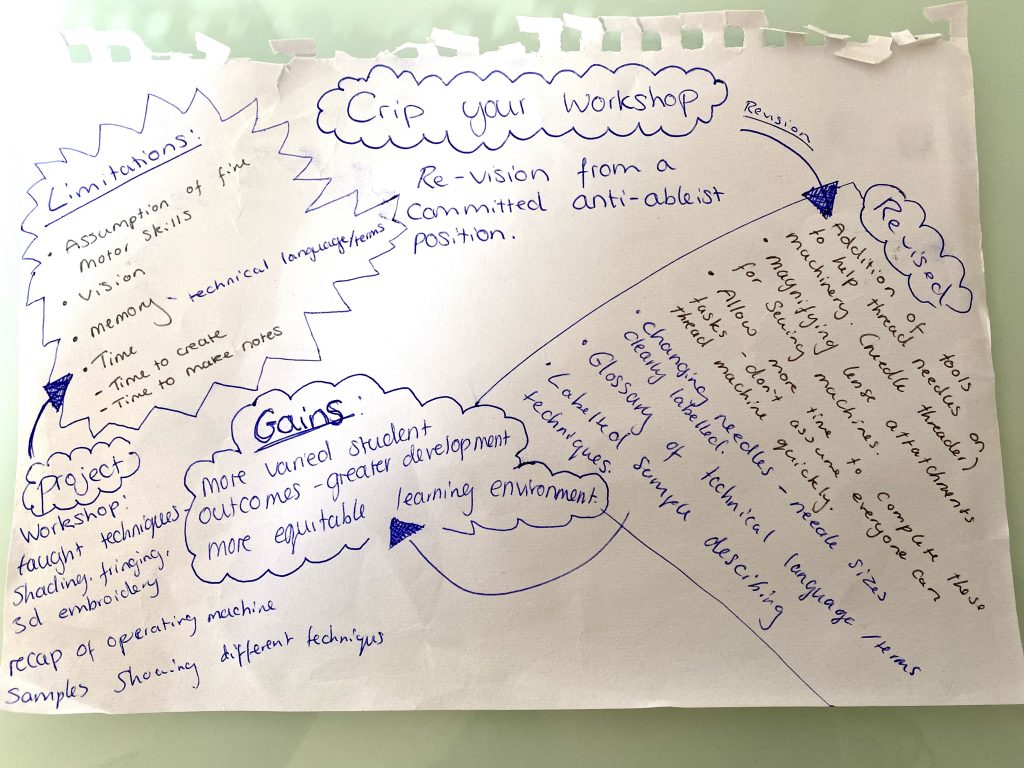 Crip your workshop
Re-vision from a
Committed anti-ableist
position.
Revision
Limitations:
• Assumption of fine
motor skills
• Vision
• memory - technical language/terms
• Time
- Time to create
- Time to make notes
project
Workshop:
taught techniques-
Shading, fringing,
3d embroidery
recap of operating machine
Samples Showing different techniqus
Gains:
more varied student
outcomes - greater development
more equitable learning environment
Revised
Addition of tools
to help thread needles on
machinery. (needle threader)
• magnifying lense attatchments
for Sewing machines.
• Allow more time to complete those
tasks - don't assume everyone can
thread machine quickly.
• changing needles - needle sizes
clearly labelled.
• Glossary of technical language/terms
• Labelled sample descibing
techniques